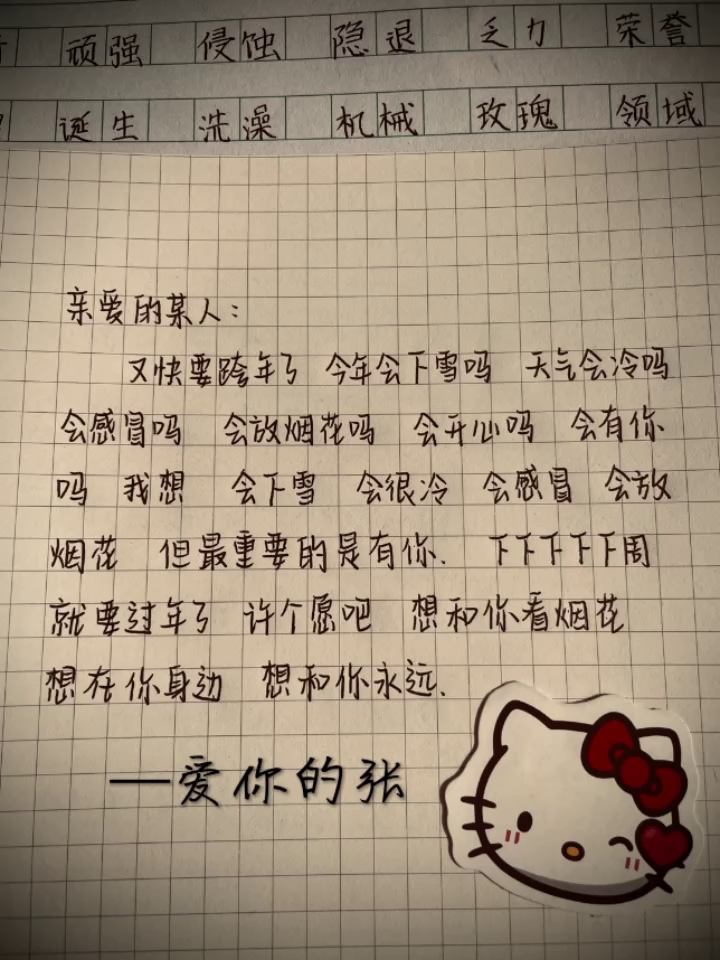 顽强 侵蚀 隐退 乏力 荣誉
诞生 洗澡 机械 玫瑰 领域
亲爱的某人：
又快要跨年了 今年会下雪吗 天气会冷吗
会感冒吗 会放烟花吗 会开心吗 会有你
吗 我想 会下雪 会很冷 会感冒 会放
烟花 但最重要的是有你. 下下下下下周
就要过年了 许个愿吧 想和你看烟花
想在你身边 想和你永远.
——爱你的张